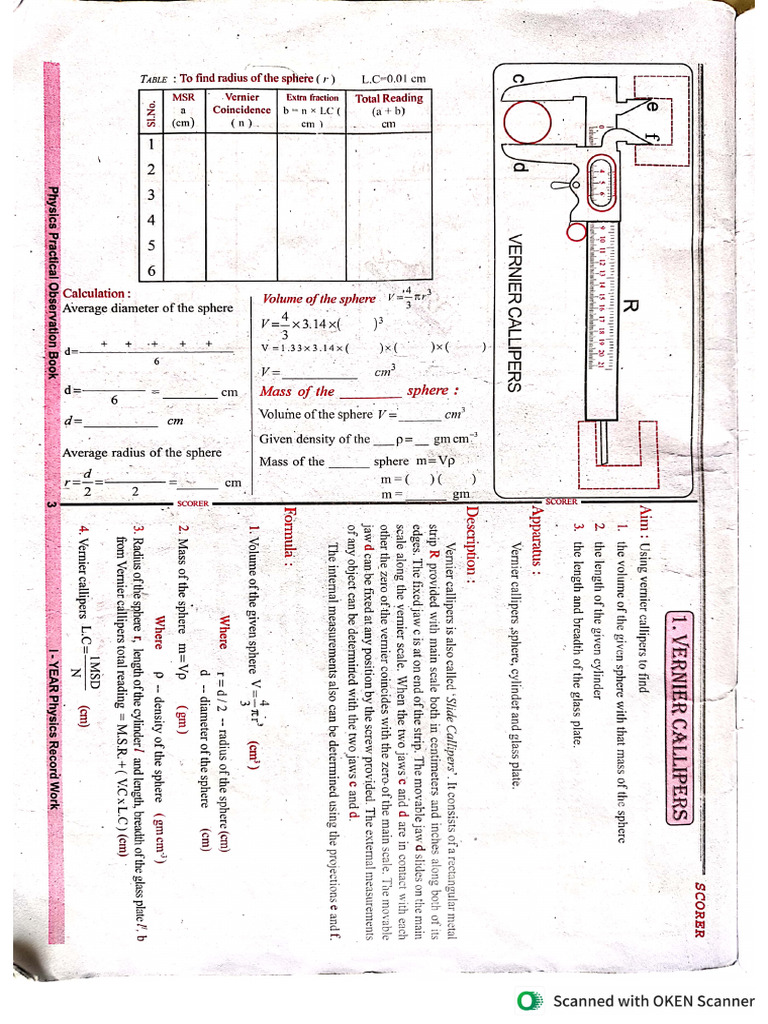 SCORER
1. VERNIER CALLIPERS
Aim : Using vernier callipers to find
1. the volume of the given sphere with that mass of the sphere
2. the length of the given cylinder
3. the length and breadth of the glass plate.
Apparatus :
Vernier callipers ,sphere, cylinder and glass plate.
Description :
Vernier callipers is also called 'Slide Callipers'. It consists of a rectangular metal
strip R provided with main scale both in centimeters and inches along both of its
edges. The fixed jaw c is at on end of the strip. The movable jaw d slides on the main
scale along the vernier scale. When the two jaws c and d are in contact with each
other the zero of the vernier coincides with the zero of the main scale. The movable
jaw d can be fixed at any position by the screw provided. The external measurements
of any object can be determined with the two jaws c and d.
The internal measurements also can be determined using the projections e and f.
Formula :
1. Volume of the given sphere V = 4/3 πr³ (cm³)
Where r = d / 2 -- radius of the sphere (cm)
d -- diameter of the sphere (cm)
2. Mass of the sphere m = Vρ (gm)
Where ρ -- density of the sphere (gm cm⁻³)
3. Radius of the sphere r, length of the cylinder l and length, breadth of the glass plate l', b
from Vernier callipers total reading = M.S.R. + ( VC x L.C ) (cm)
4. Vernier callipers L.C = 1MSD/N (cm)
e
f
c
d
R
0
4 5 6
9 10 11 12 13 14 15 16 17 18 19 20 21
VERNIER CALLIPERS
SCORER
TABLE : To find radius of the sphere ( r ) L.C=0.01 cm
Sl.No. MSR a (cm) Vernier Coincidence ( n ) Extra fraction b = n × LC ( cm ) Total Reading (a + b) cm
1
2
3
4
5
6
Calculation :
Average diameter of the sphere
d= + + + + + / 6
d= ______ / 6 = ______ cm
d= ______ cm
Average radius of the sphere
r = d/2 = ______ / 2 = ______ cm
SCORER
Volume of the sphere V = 4/3 πr³
V = 4/3 × 3.14 × ( )³
V = 1.33 × 3.14 × ( ) × ( ) × ( )
V = ______ cm³
Mass of the ______ sphere :
Volume of the sphere V = ______ cm³
Given density of the ___ ρ = __ gm cm⁻³
Mass of the ______ sphere m = Vρ
m = ( ) ( )
m = ______ gm
Physics Practical Observation Book 3 I - YEAR Physics Record Work
Scanned with OKEN Scanner